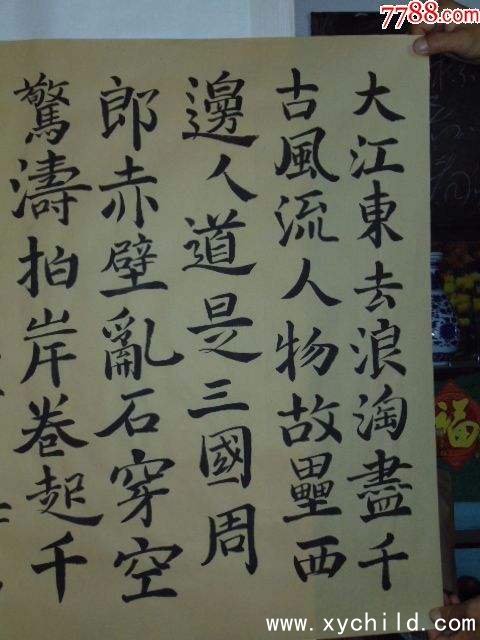 7788.com
大江東去浪淘盡千
古風流人物故壘西
邊人道是三國周
郎赤壁亂石穿空
驚濤拍岸卷起千
福
www.xychild.com